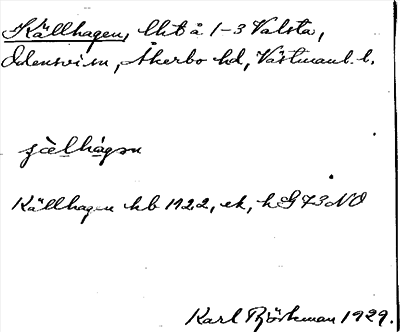 Källhagen, lht å 1-3 Valsta,
Odensvi sn, Åkerbo hd, Västmanl. l.
Källhagen hb 1922, ek, hG 73 NO
Karl Björkman 1929.